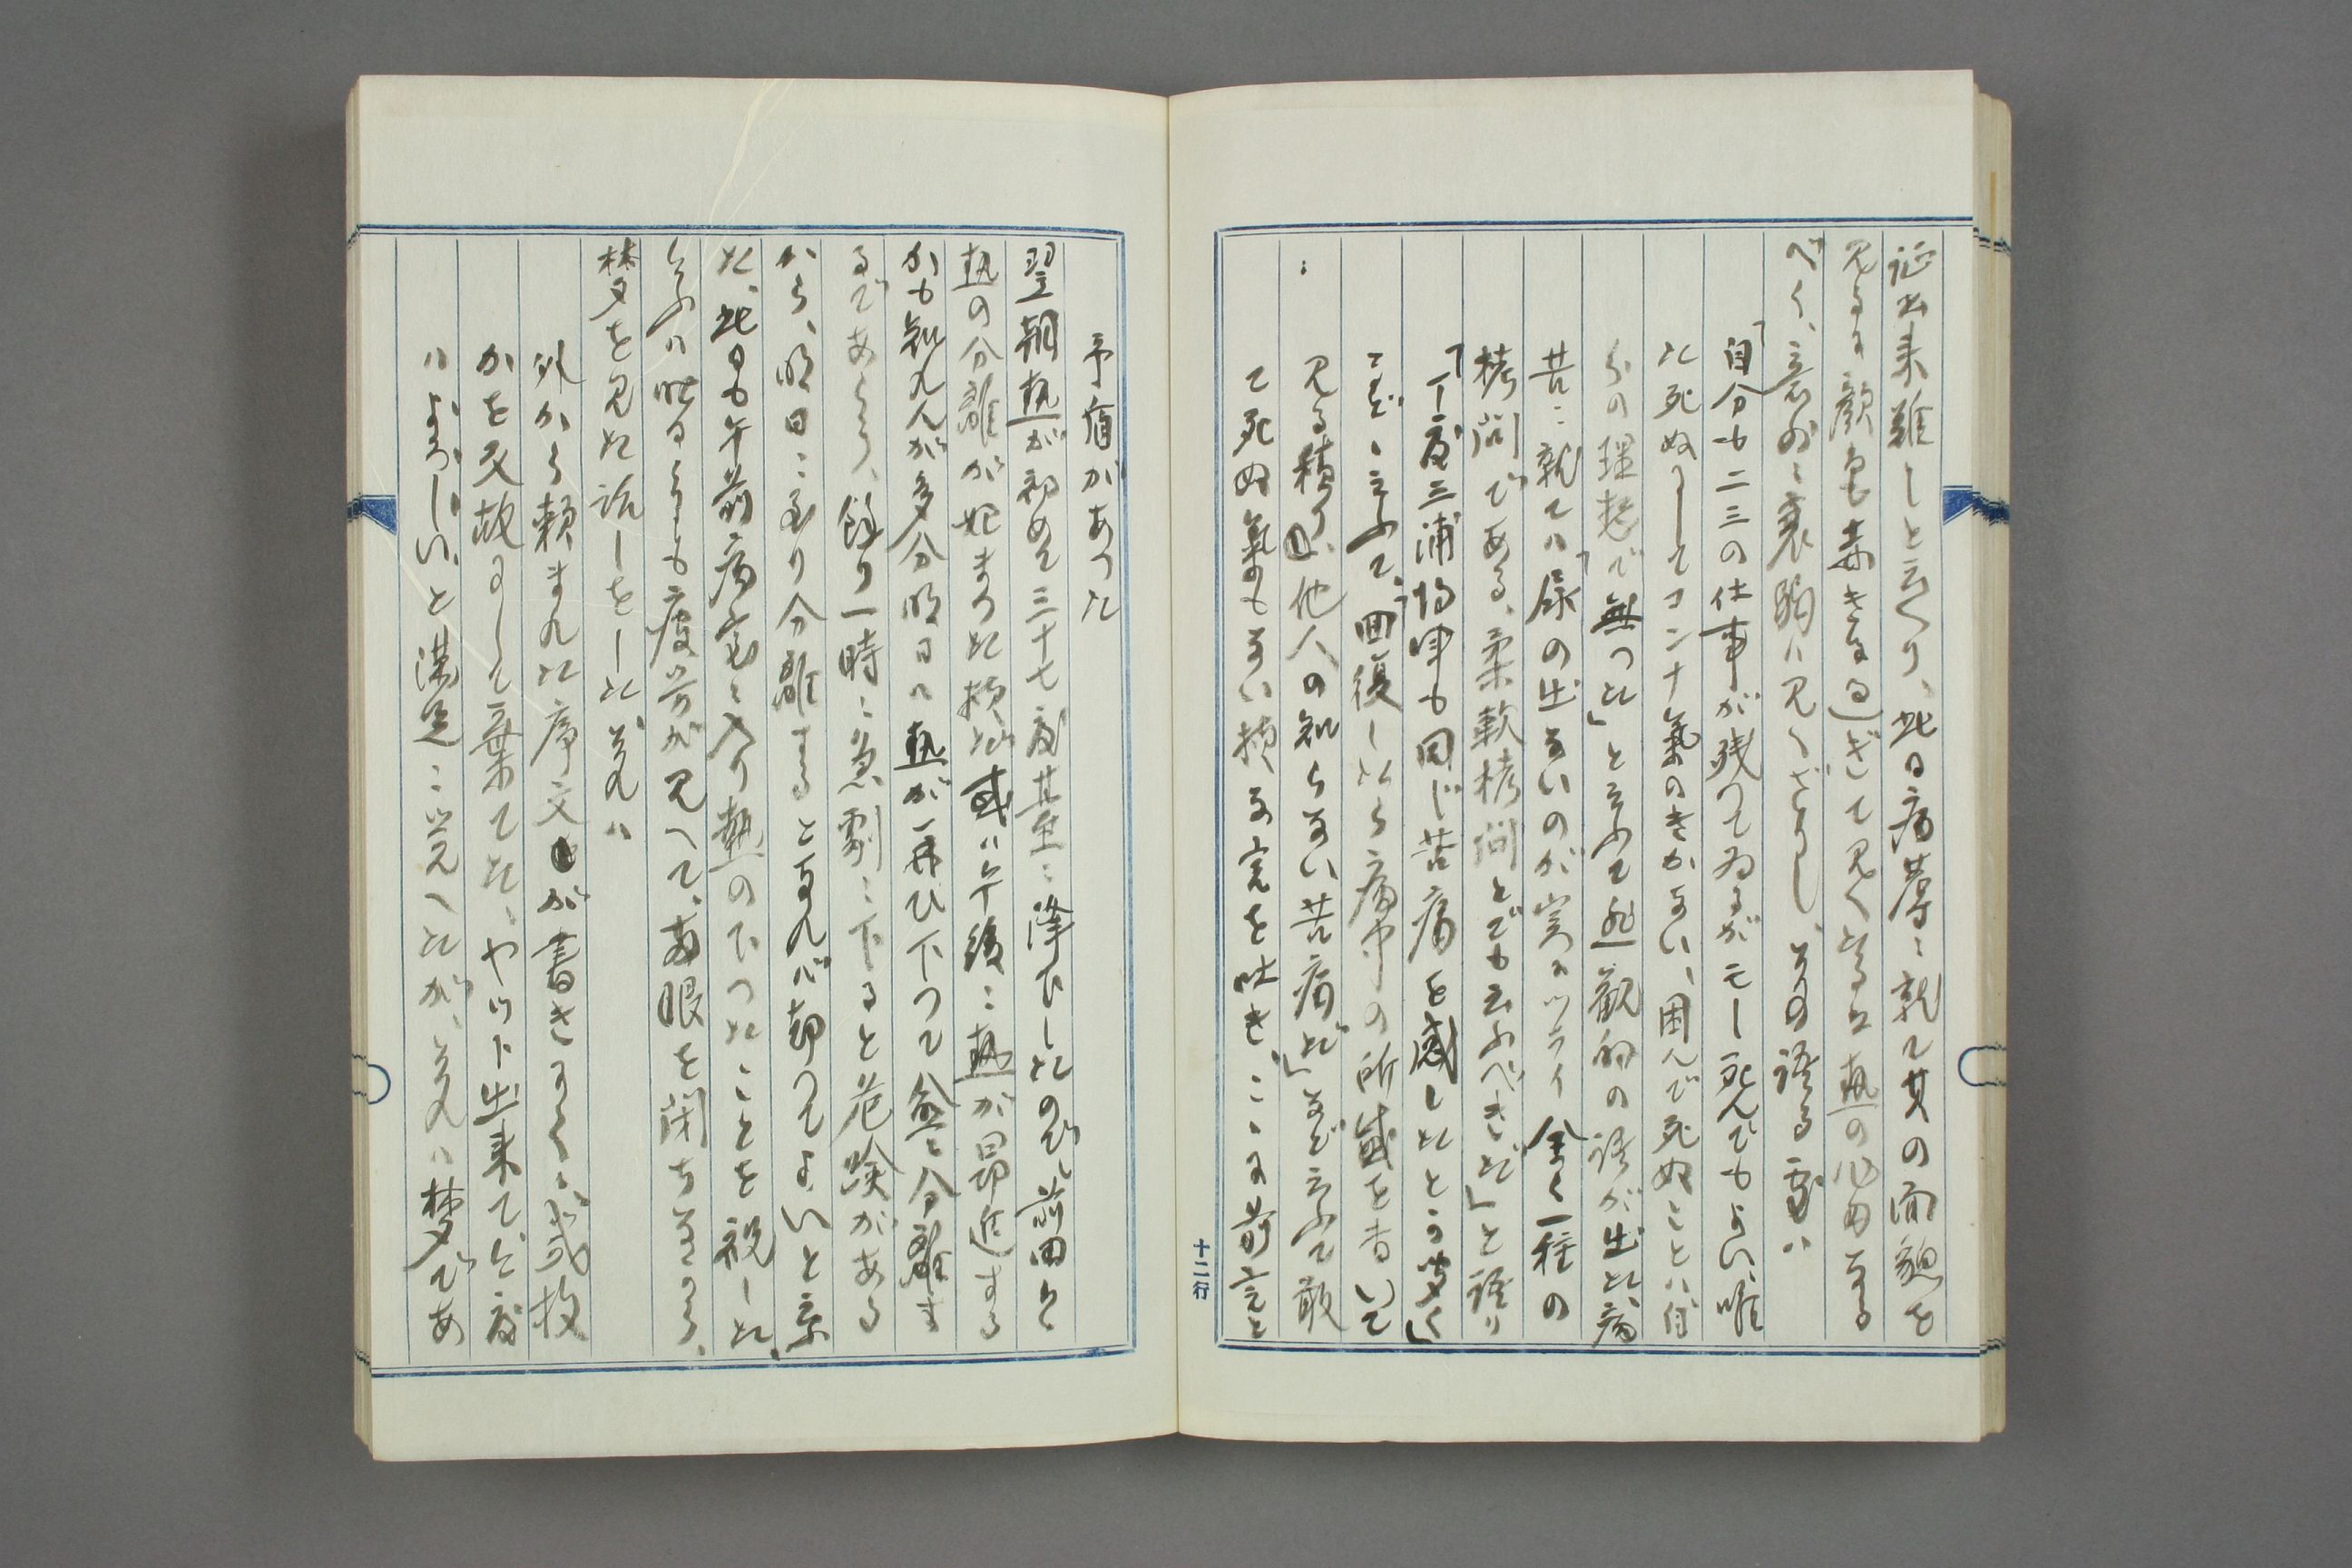 証出来難しと云へり、此日病蓐ニ就て其の面貌を
見るに顔色も赤きに過ぎて見へたるは熱の為めなる
べく、意外ニ衰弱ハ見へざりし、その語る處ハ
「自分も二三の仕事が残つてゐるがモー死んでもよい、唯
た死ぬにしてコンナ氣のきかない、困んで死ぬことハ自
分の理想で無つた」と云ふて悲観的の語が出た、病
苦ニ就てハ「尿の出ないのが実にツライ全く一種の
拷問である、柔軟拷問とでも云ふべきだ」と語り
「丁度三浦将軍も同じ苦痛を感したとか聞く」
など云ふて、「回復したら病中の所感を書いて
見る積り、他人の知らない苦痛だ」など云ふて敢
て死ぬ氣もない様な言を吐き、ここに前言と
十二行
予盾があつた
翌朝熱が初めて三十七度其至ニ降下したので、前田ハ
熱の分離が始まつた様だ或ハ午後ニ熱が昂進する
かも知れんが多分明日ハ熱が再び下つて愈々分離す
るであらう、餘り一時ニ急劇ニ下ると危険がある
から、明日ニ至り分離するとなれバ却つてよいと云
た、此日も午前病室ニ入り熱の下つたことを祝した、
疲労が見へて、両眼を閉ちながら、
夢を見た話しをした、それハ
外から頼まれた序文が書きかくニ、或枚
かを反故にして棄てた、ヤツト出来て今度
ハよろしい、と満足ニ覚へたが、それハ夢であ